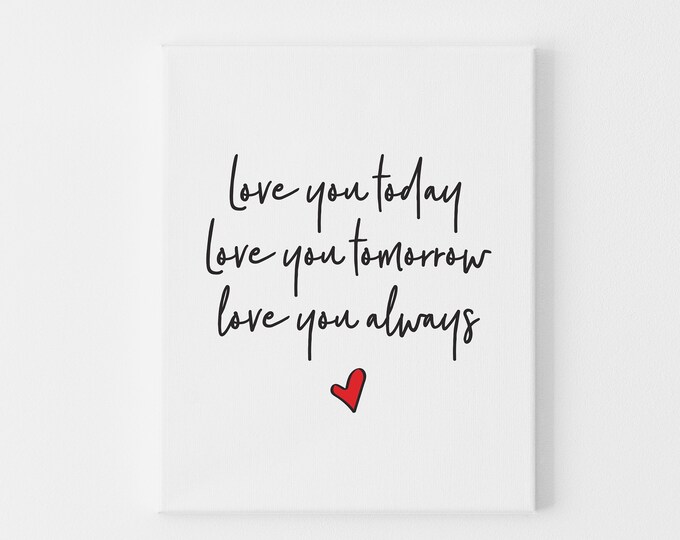 Love you today
Love you tomorrow
love you always